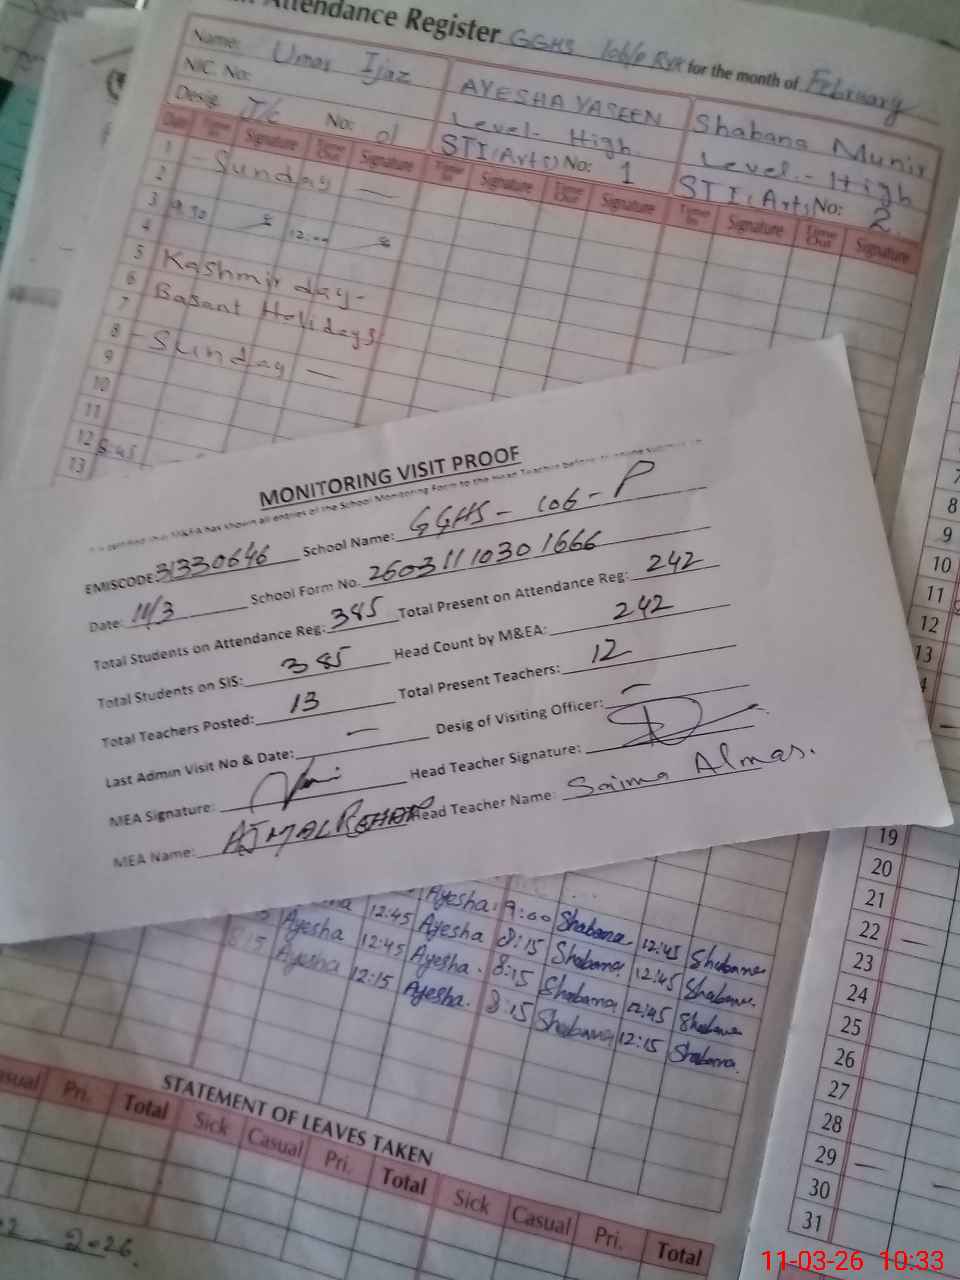 Attendance Register GGHS 106/P RYK for the month of February
Name: Umar Ijaz
N.I.C. No:
Desig. J/C No: 01
AYESHA YASEEN
Level - High
STI (Arts) No: 1
Shabana Munir
Level - High
STI (Arts) No: 2
Date Time In Signature Time Out Signature Time In Signature Time Out Signature Time In Signature Time Out Signature
1 - Sunday -
2
3 9.30 12:00
4
5 Kashmir day -
6 Basant Holidays
7
8 - Sunday -
9
10
11
12 8:45
13
MONITORING VISIT PROOF
EMISCODE: 31330646 School Name: GGHS - 106 - P
Date: 11/3 School Form No. 2603111030 1666
Total Students on Attendance Reg: 385 Total Present on Attendance Reg: 242
Total Students on SIS: 385 Head Count by M&EA: 242
Total Teachers Posted: 13 Total Present Teachers: 12
Last Admin Visit No & Date: - Desig of Visiting Officer: -
MEA Signature: Head Teacher Signature:
MEA Name: AJMAL REHMAN Head Teacher Name: Saima Almas.
Ayesha 9:00 Shabana 12:45 Shabana
Ayesha 12:45 Ayesha 8:15 Shabana 12:45 Shabana
8:15 Ayesha 12:45 Ayesha. 8:15 Shabana 12:45 Shabana
12:15 Ayesha. 8:15 Shabana 12:15 Shabana.
STATEMENT OF LEAVES TAKEN
Casual Pri. Total Sick Casual Pri. Total Sick Casual Pri. Total
2-2026
7
8
9
10
11
12
13
19
20
21
22 -
23
24
25
26
27
28
29 -
30
31
11-03-26 10:33